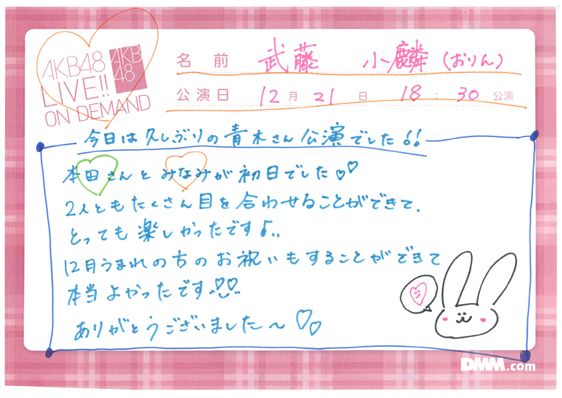 AKB48
LIVE!!
ON DEMAND
AKB
48
名前 武藤 小麟(おりん)
公演日 12月21日 18:30公演
今日は久しぶりの青木さん公演でした!!
本田さんとみなみが初日でした♡♡
2人ともたくさん目を合わせることができて、
とっても楽しかったです♪..
12月うまれの方のお祝いもすることができて
本当よかったです♡♡
ありがとうございました〜♡♡
DMM.com